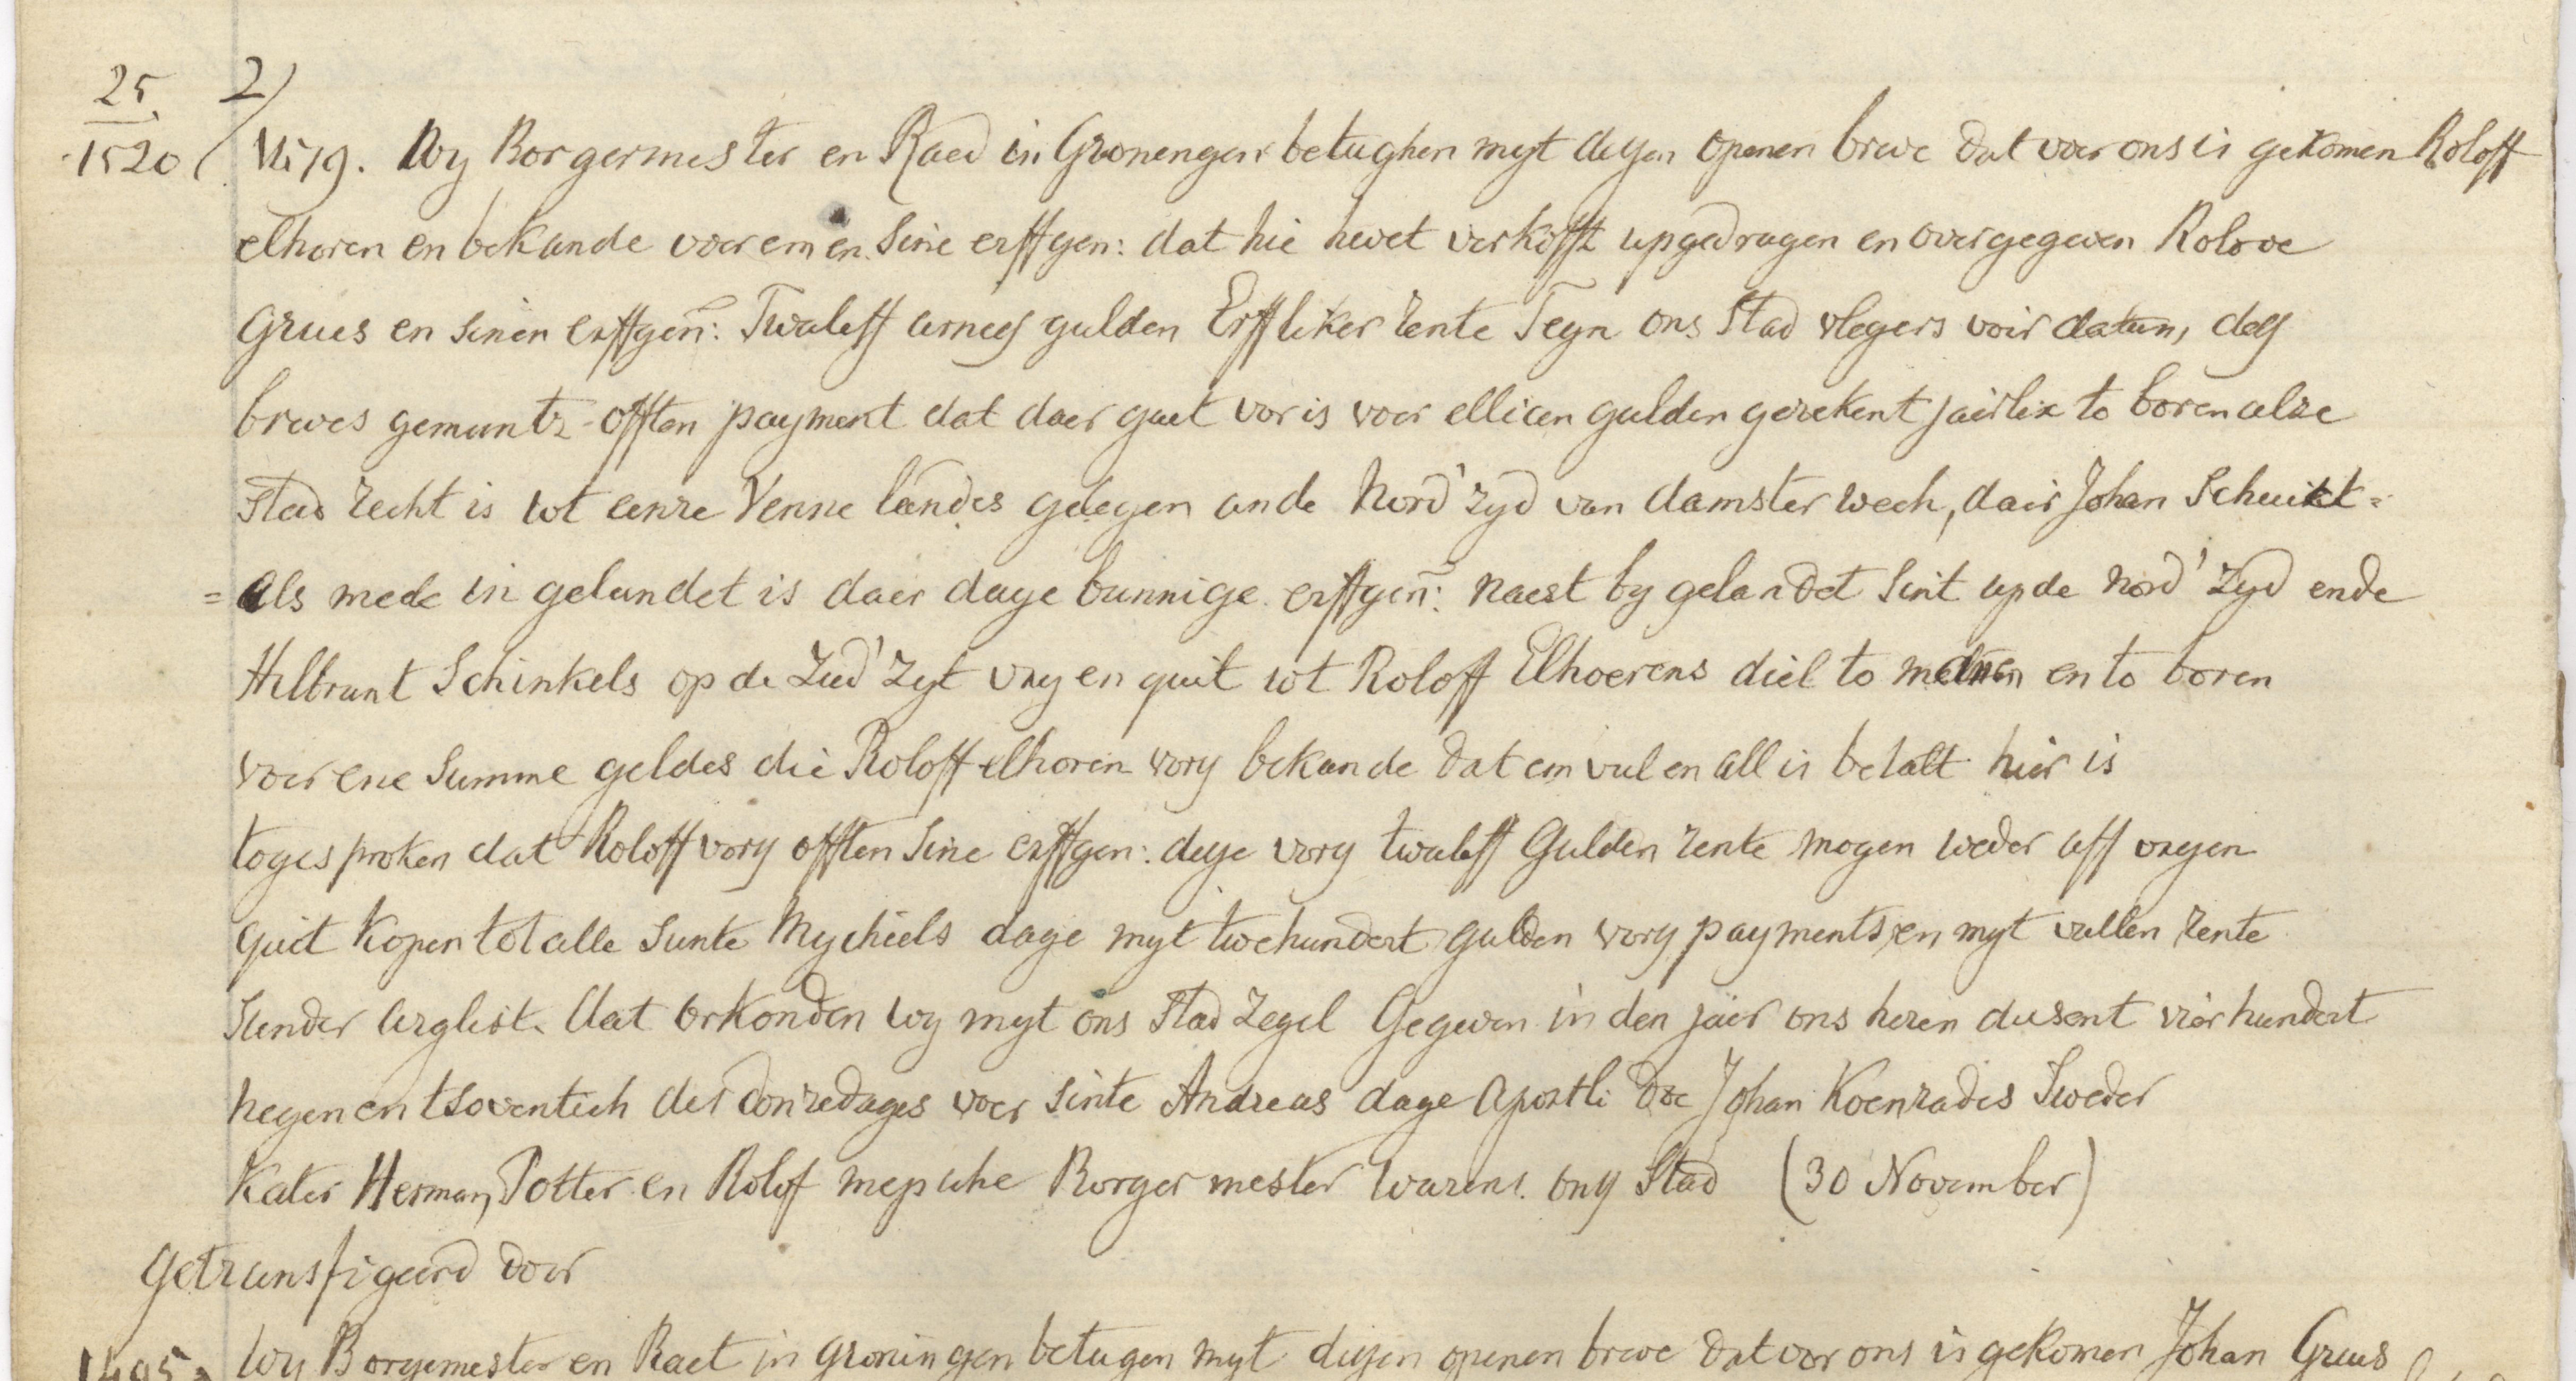 25 2)
1520 1479. Wy Borgermester en Raed in Gronengen betughen myt desen openen breve dat voer ons is gekomen Roloff
elhoren en bekande voer em en sine erffgen: dat hie hevet verkofft upgedragen en overgegeven Rolove
Grues en sinen erffgen: Twaleff arnes gulden Erffliker rente Tegn ons Stad vlegers voir datum, des
breves gemunts offten payment dat daer guet vor is voer ellicen gulden gerekent jairlix to boren alze
stad recht is wt eenre Venne landes gelegen an de Nord' zyd van damster wech, dair Johan Schuikt=
=als mede in gelandet is daer daye bunnige erffgen: naest by gelandet sint up de nord' zyd ende
Hilbrant Schinkels op de Zud' zyt vry en quit wt Roloff Elhoerens diel to manen en to boren
voer ene summe geldes die Roloff elhoren vors bekande dat em vul en all is betalt hier is
togesproken dat Roloff vors offten sine erffgen: dese vors twaleff Gulden rente mogen weder aff vryen
quit kopen tot alle sunte Mychiels dage myt twehundert gulden vors payments en myt vullen rente
sunder arglist. Dat orkonden wy myt ons Stad Zegel Gegeven in den jaer ons heren dusent vier hundert
negen en tsoventich des donredages voer sinte Andreas dage apostli doe Johan Koenrades Sweder
Kater Herman, Potter en Rolof mepsche Borgermester waren: ons Stad (30 November)
Getransfigeerd door
1495 Wy Borgemester en Raet in groningen betugen myt desen openen breve dat vor ons is gekomen Johan Grues